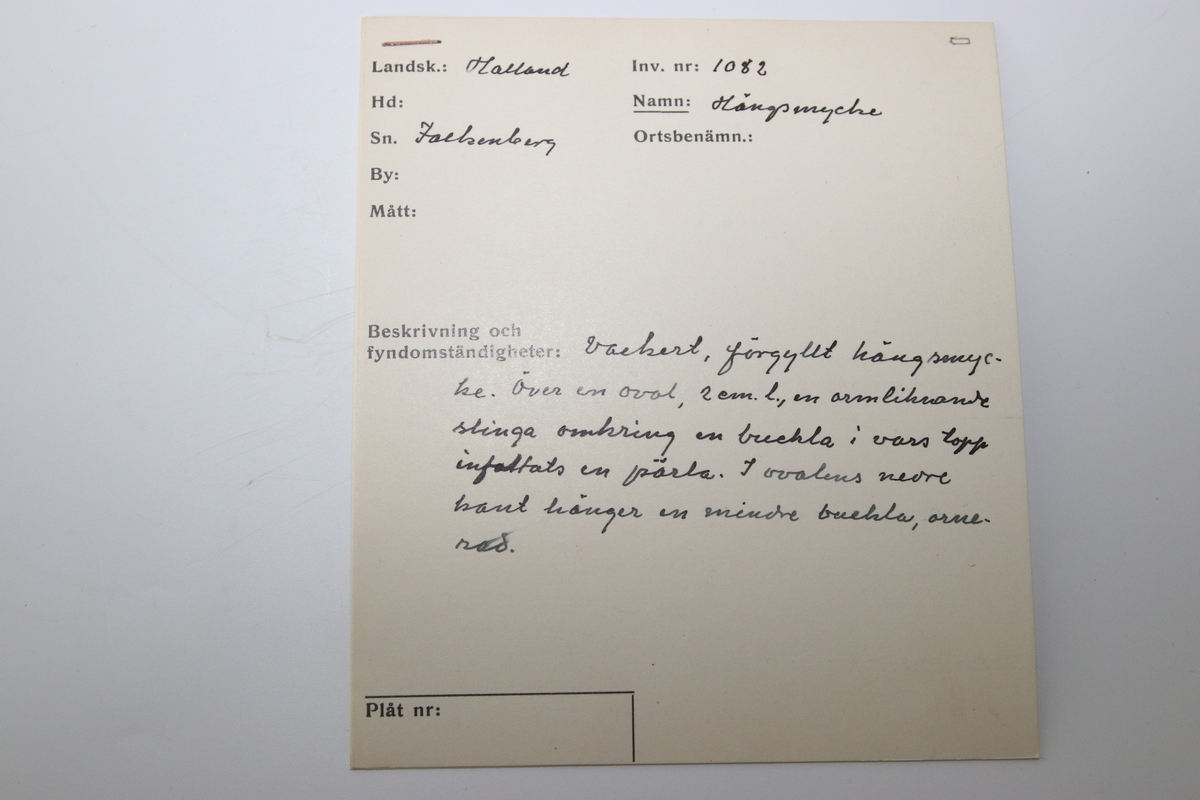 Landsk.: Halland
Inv. nr: 1082
Hd:
Namn: Hängsmycke
Sn. Falkenberg
Ortsbenämn.:
By:
Mått:
Beskrivning och
fyndomständigheter: Vackert, förgyllt hängsmyc-
ke. Över en oval, 2 cm. l., en ormliknande
slinga omkring en buckla i vars topp
infattats en pärla. I ovalens nedre
kant hänger en mindre buckla, orne-
rad.
Plåt nr: